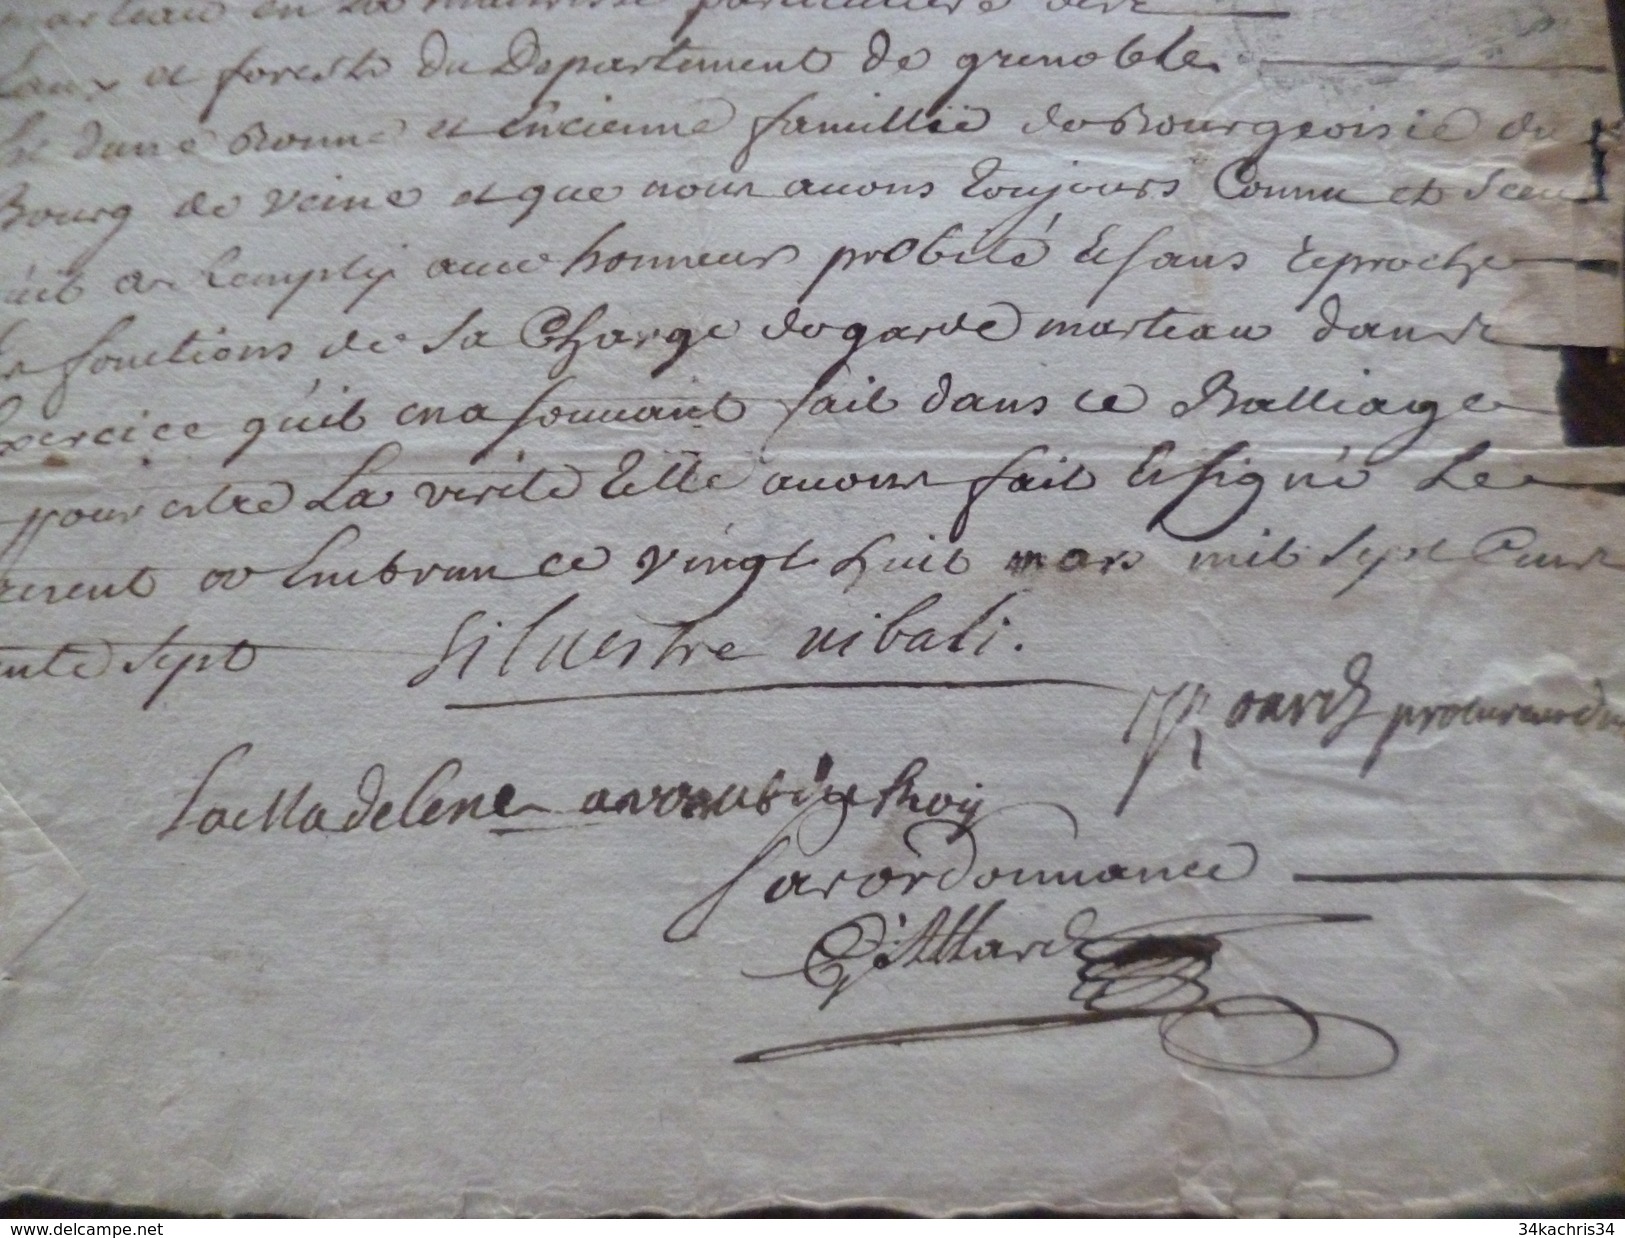 marteau en la maitrise particuliere des
Eaux et forests du Departement de grenoble
d'une Bonne et Encienne famillie de Bourgeoisie du
Bourg de veine et que nous avons toujours Connu et Sceu
a Remply avec honneur probité Et sans Reproche
Les fonctions de sa Charge de garde marteau dans
Exercice qu'il en a souvant fait dans ce Balliage
pour estre La verité telle avons fait Et signé Le
present a Embrun ce vingt huit mars mil sept Cens
trente sept
silvestre vibali.
procureur du
La Madelene avocat du Roy
par ordonnance
Attard
www.delcampe.net
34kachris34